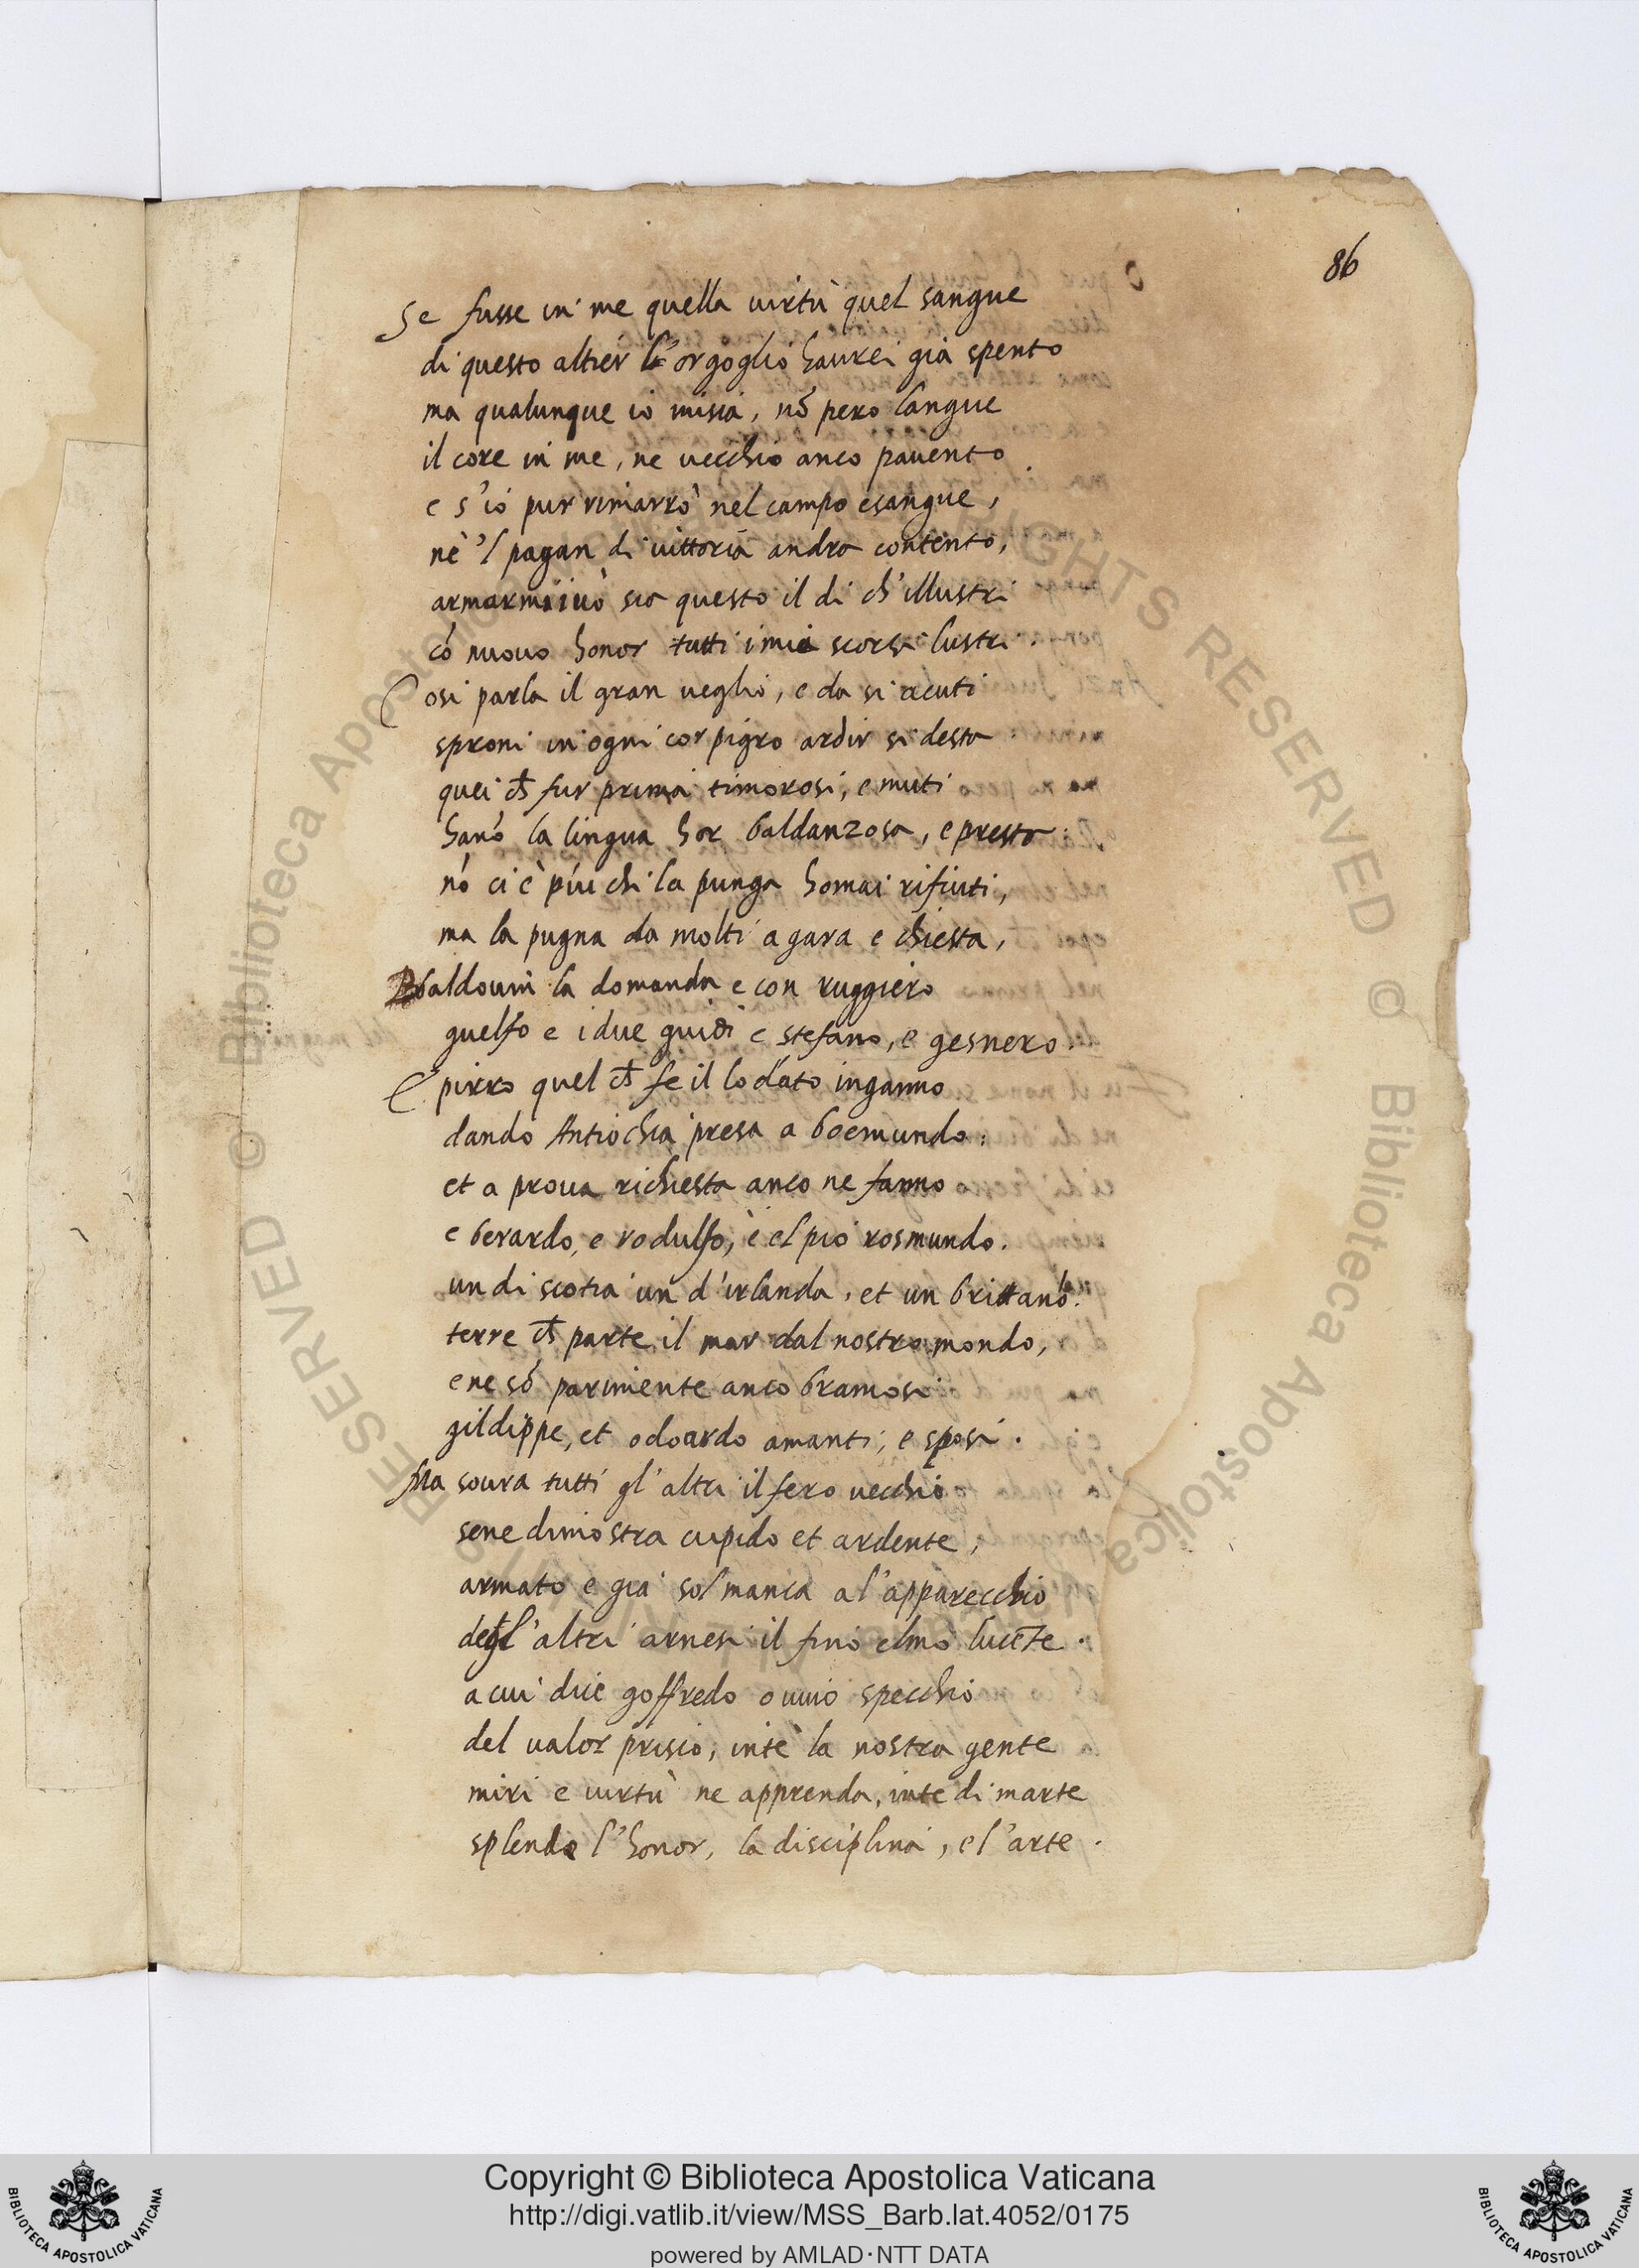 86
Se fusse in me quella uirtù quel sangue
di questo altier l'orgoglio haurei già spento
ma qualunque io misia, nõ pero langue
il core in me, ne uecchio anco pauento
e s'io pur rimarrò nel campo esangue,
nè 'l pagan di uittoria andra contento,
armarmi iuò sia questo il di ch'illustri
cõ nuouo honor tutti i miei scorsi lustri.
Cosi parla il gran ueglio, e da si acuti
sproni in ogni cor pigro ardir si desta
quei ch̃ fur prima timorosi, e muti
hanõ la lingua hor baldanzosa, e presta:
nõ ci è piu chi la punga homai rifiuti,
ma la pugna da molti a gara e chiesta,
Baldouin la domanda e con ruggiero
guelfo e i due guidi e stefano, e gesnero.
E pirro quel ch̃ fe il lodato inganno
dando Antiochia presa a boemundo:
et a proua richiesta anco ne fanno
e berardo, e rodulfo, e el pio rosmundo.
un di scotia un d'irlanda, et un brittanõ.
terre ch̃ parte il mar dal nostro mondo,
ene sõ parimente anco bramosi
gildippe, et odoardo amanti, e sposi.
Ma soura tutti gl'altri il fero uecchio
sene dimostra cupido et ardente,
armato e gia sol manca a l'apparecchio
degl'altri arnesi il fino elmo lucẽte.
a cui dice goffredo o uiuo specchio
del ualor prisco, in te la nostra gente
miri e uirtù ne apprenda, in te di marte
splende l'honor, la disciplina, e l'arte.
Copyright © Biblioteca Apostolica Vaticana
http://digi.vatlib.it/view/MSS_Barb.lat.4052/0175
powered by AMLAD·NTT DATA
BIBLIOTECA APOSTOLICA VATICANA
BIBLIOTECA APOSTOLICA VATICANA